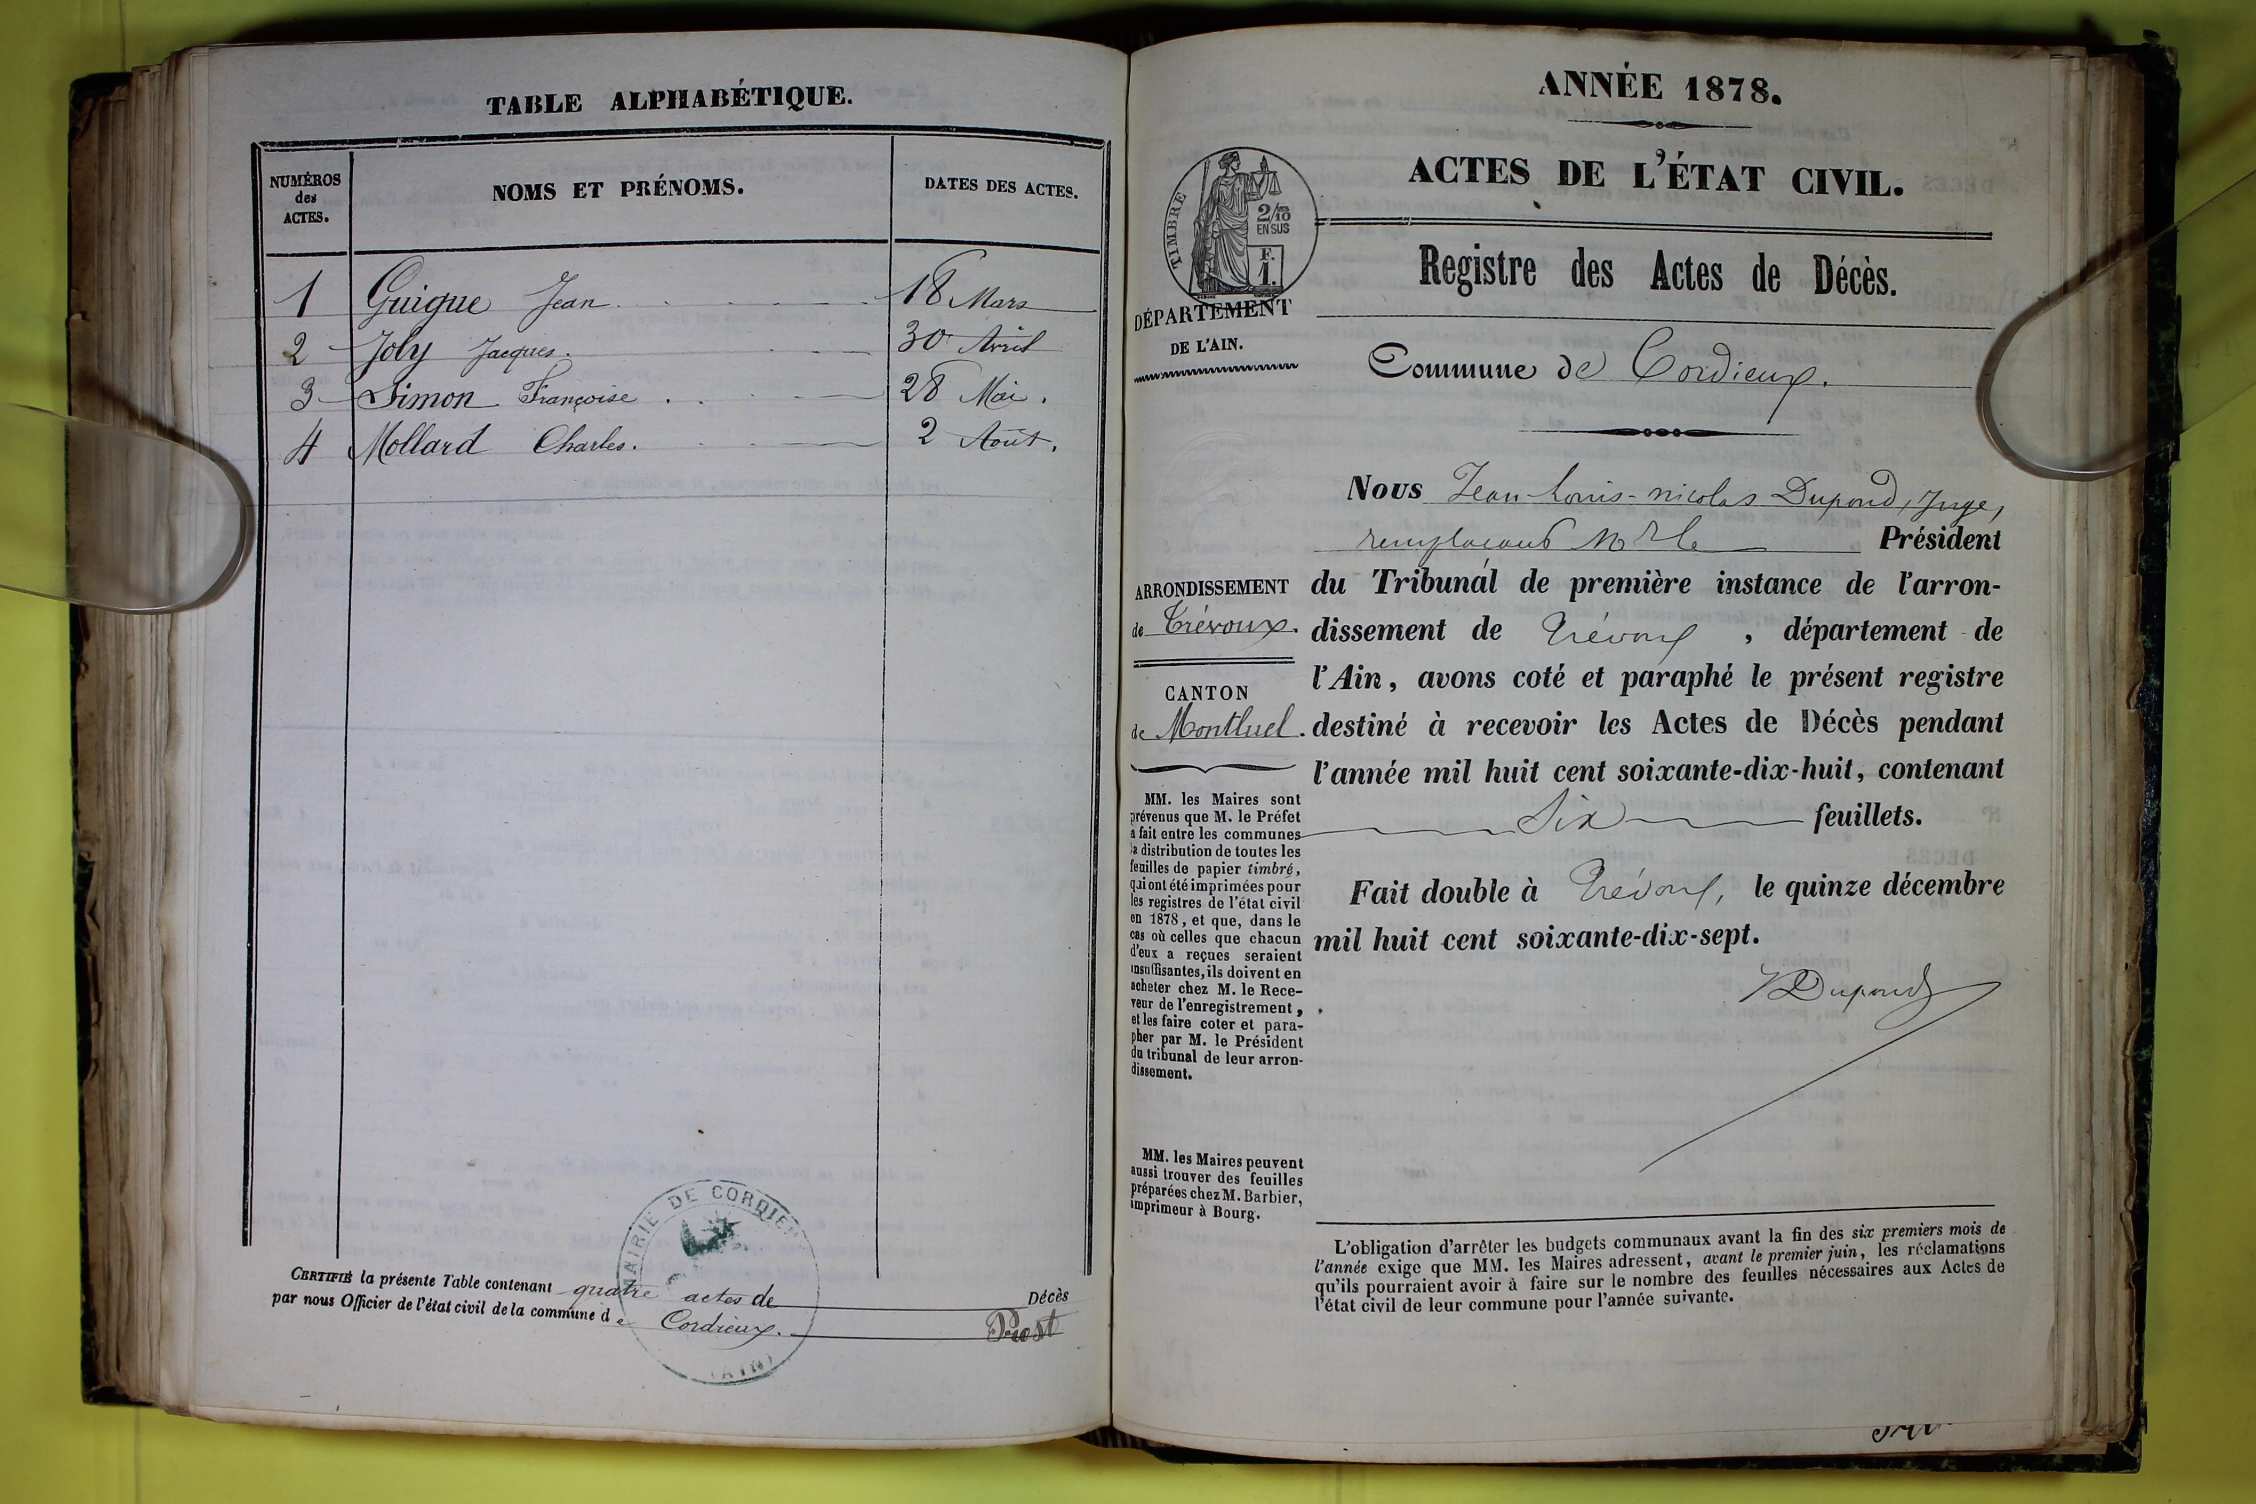 TABLE ALPHABÉTIQUE.
NUMÉROS des ACTES.
NOMS ET PRÉNOMS.
DATES DES ACTES.
1 Guigue Jean 18 Mars
2 Joly Jacques. 30 Avril
3 Simon Françoise 28 Mai.
4 Mollard Charles. 2 Août.
CERTIFIÉ la présente Table contenant quatre actes de Décès
par nous Officier de l'état civil de la commune de Cordieux.
Prost
MAIRIE DE CORDIEUX
(AIN)
ANNÉE 1878.
ACTES DE L'ÉTAT CIVIL.
TIMBRE
2/10
EN SUS
F.
1.
Registre des Actes de Décès.
DÉPARTEMENT
DE L'AIN.
Commune de Cordieux.
Nous Jean-Louis-nicolas Dupond, Juge,
remplaçant Mr le Président
ARRONDISSEMENT
de Trévoux.
du Tribunal de première instance de l'arron-
dissement de Trévoux, département de
l'Ain, avons coté et paraphé le présent registre
CANTON
de Montluel.
destiné à recevoir les Actes de Décès pendant
l'année mil huit cent soixante-dix-huit, contenant
Six feuillets.
Fait double à Trévoux, le quinze décembre
mil huit cent soixante-dix-sept.
Dupond
MM. les Maires sont
prévenus que M. le Préfet
a fait entre les communes
la distribution de toutes les
feuilles de papier timbré,
qui ont été imprimées pour
les registres de l'état civil
en 1878, et que, dans le
cas où celles que chacun
d'eux a reçues seraient
insuffisantes, ils doivent en
acheter chez M. le Rece-
veur de l'enregistrement,
et les faire coter et para-
pher par M. le Président
du tribunal de leur arron-
dissement.
MM. les Maires peuvent
aussi trouver des feuilles
préparées chez M. Barbier,
imprimeur à Bourg.
L'obligation d'arrêter les budgets communaux avant la fin des six premiers mois de
l'année exige que MM. les Maires adressent, avant le premier juin, les réclamations
qu'ils pourraient avoir à faire sur le nombre des feuilles nécessaires aux Actes de
l'état civil de leur commune pour l'année suivante.